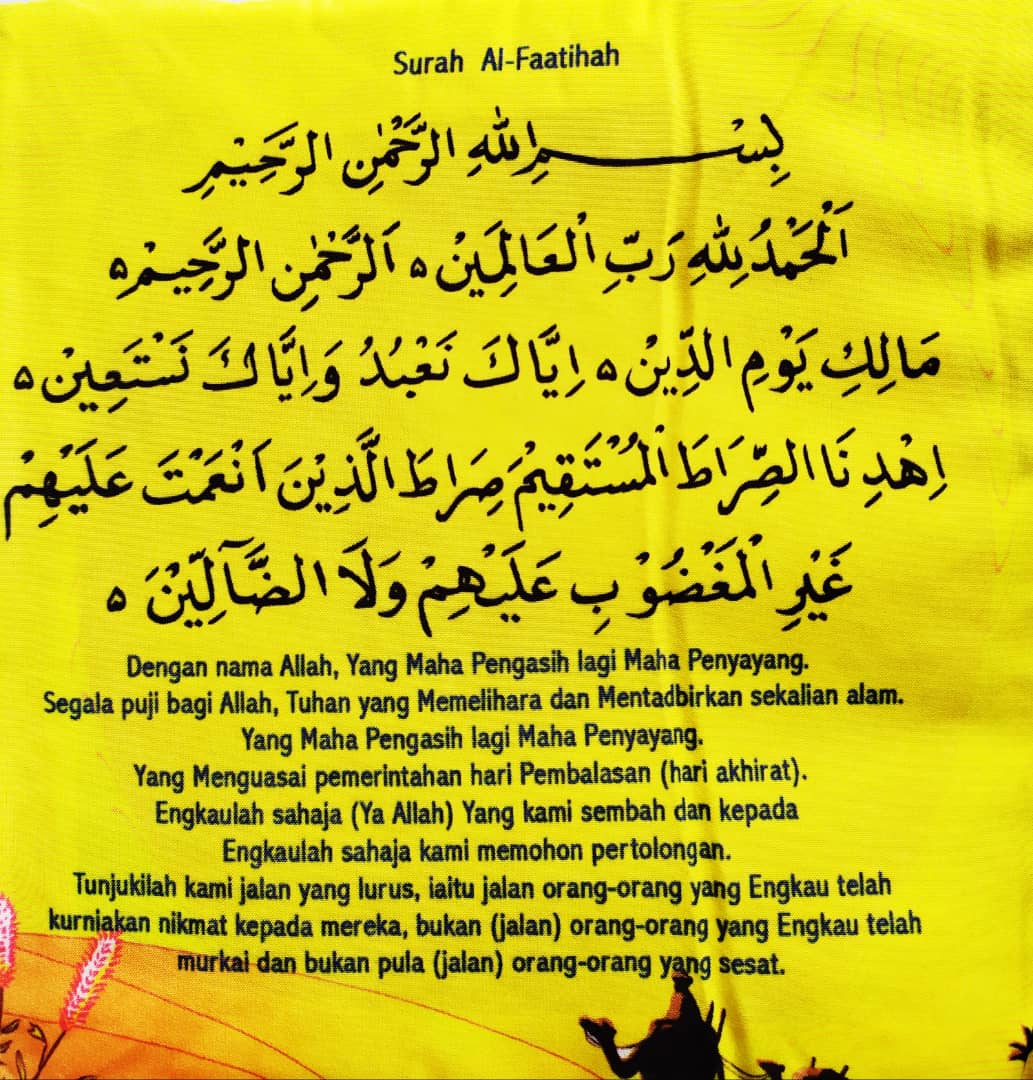 Surah Al-Faatihah
بِسْــــمِ اللهِ الرَّحْمٰنِ الرَّحِيْمِ
اَلْحَمْدُ لِلهِ رَبِّ الْعَالَمِيْنَ ۵ اَلرَّحْمٰنِ الرَّحِيْمِ ۵
مَالِكِ يَوْمِ الدِّيْنِ ۵ اِيَّاكَ نَعْبُدُ وَاِيَّاكَ نَسْتَعِيْنُ ۵
اِهْدِنَا الصِّرَاطَ الْمُسْتَقِيْمَ صِرَاطَ الَّذِيْنَ اَنْعَمْتَ عَلَيْهِمْ
غَيْرِ الْمَغْضُوْبِ عَلَيْهِمْ وَلَا الضَّآلِّيْنَ ۵
Dengan nama Allah, Yang Maha Pengasih lagi Maha Penyayang.
Segala puji bagi Allah, Tuhan yang Memelihara dan Mentadbirkan sekalian alam.
Yang Maha Pengasih lagi Maha Penyayang.
Yang Menguasai pemerintahan hari Pembalasan (hari akhirat).
Engkaulah sahaja (Ya Allah) Yang kami sembah dan kepada
Engkaulah sahaja kami memohon pertolongan.
Tunjukilah kami jalan yang lurus, iaitu jalan orang-orang yang Engkau telah
kurniakan nikmat kepada mereka, bukan (jalan) orang-orang yang Engkau telah
murkai dan bukan pula (jalan) orang-orang yang sesat.